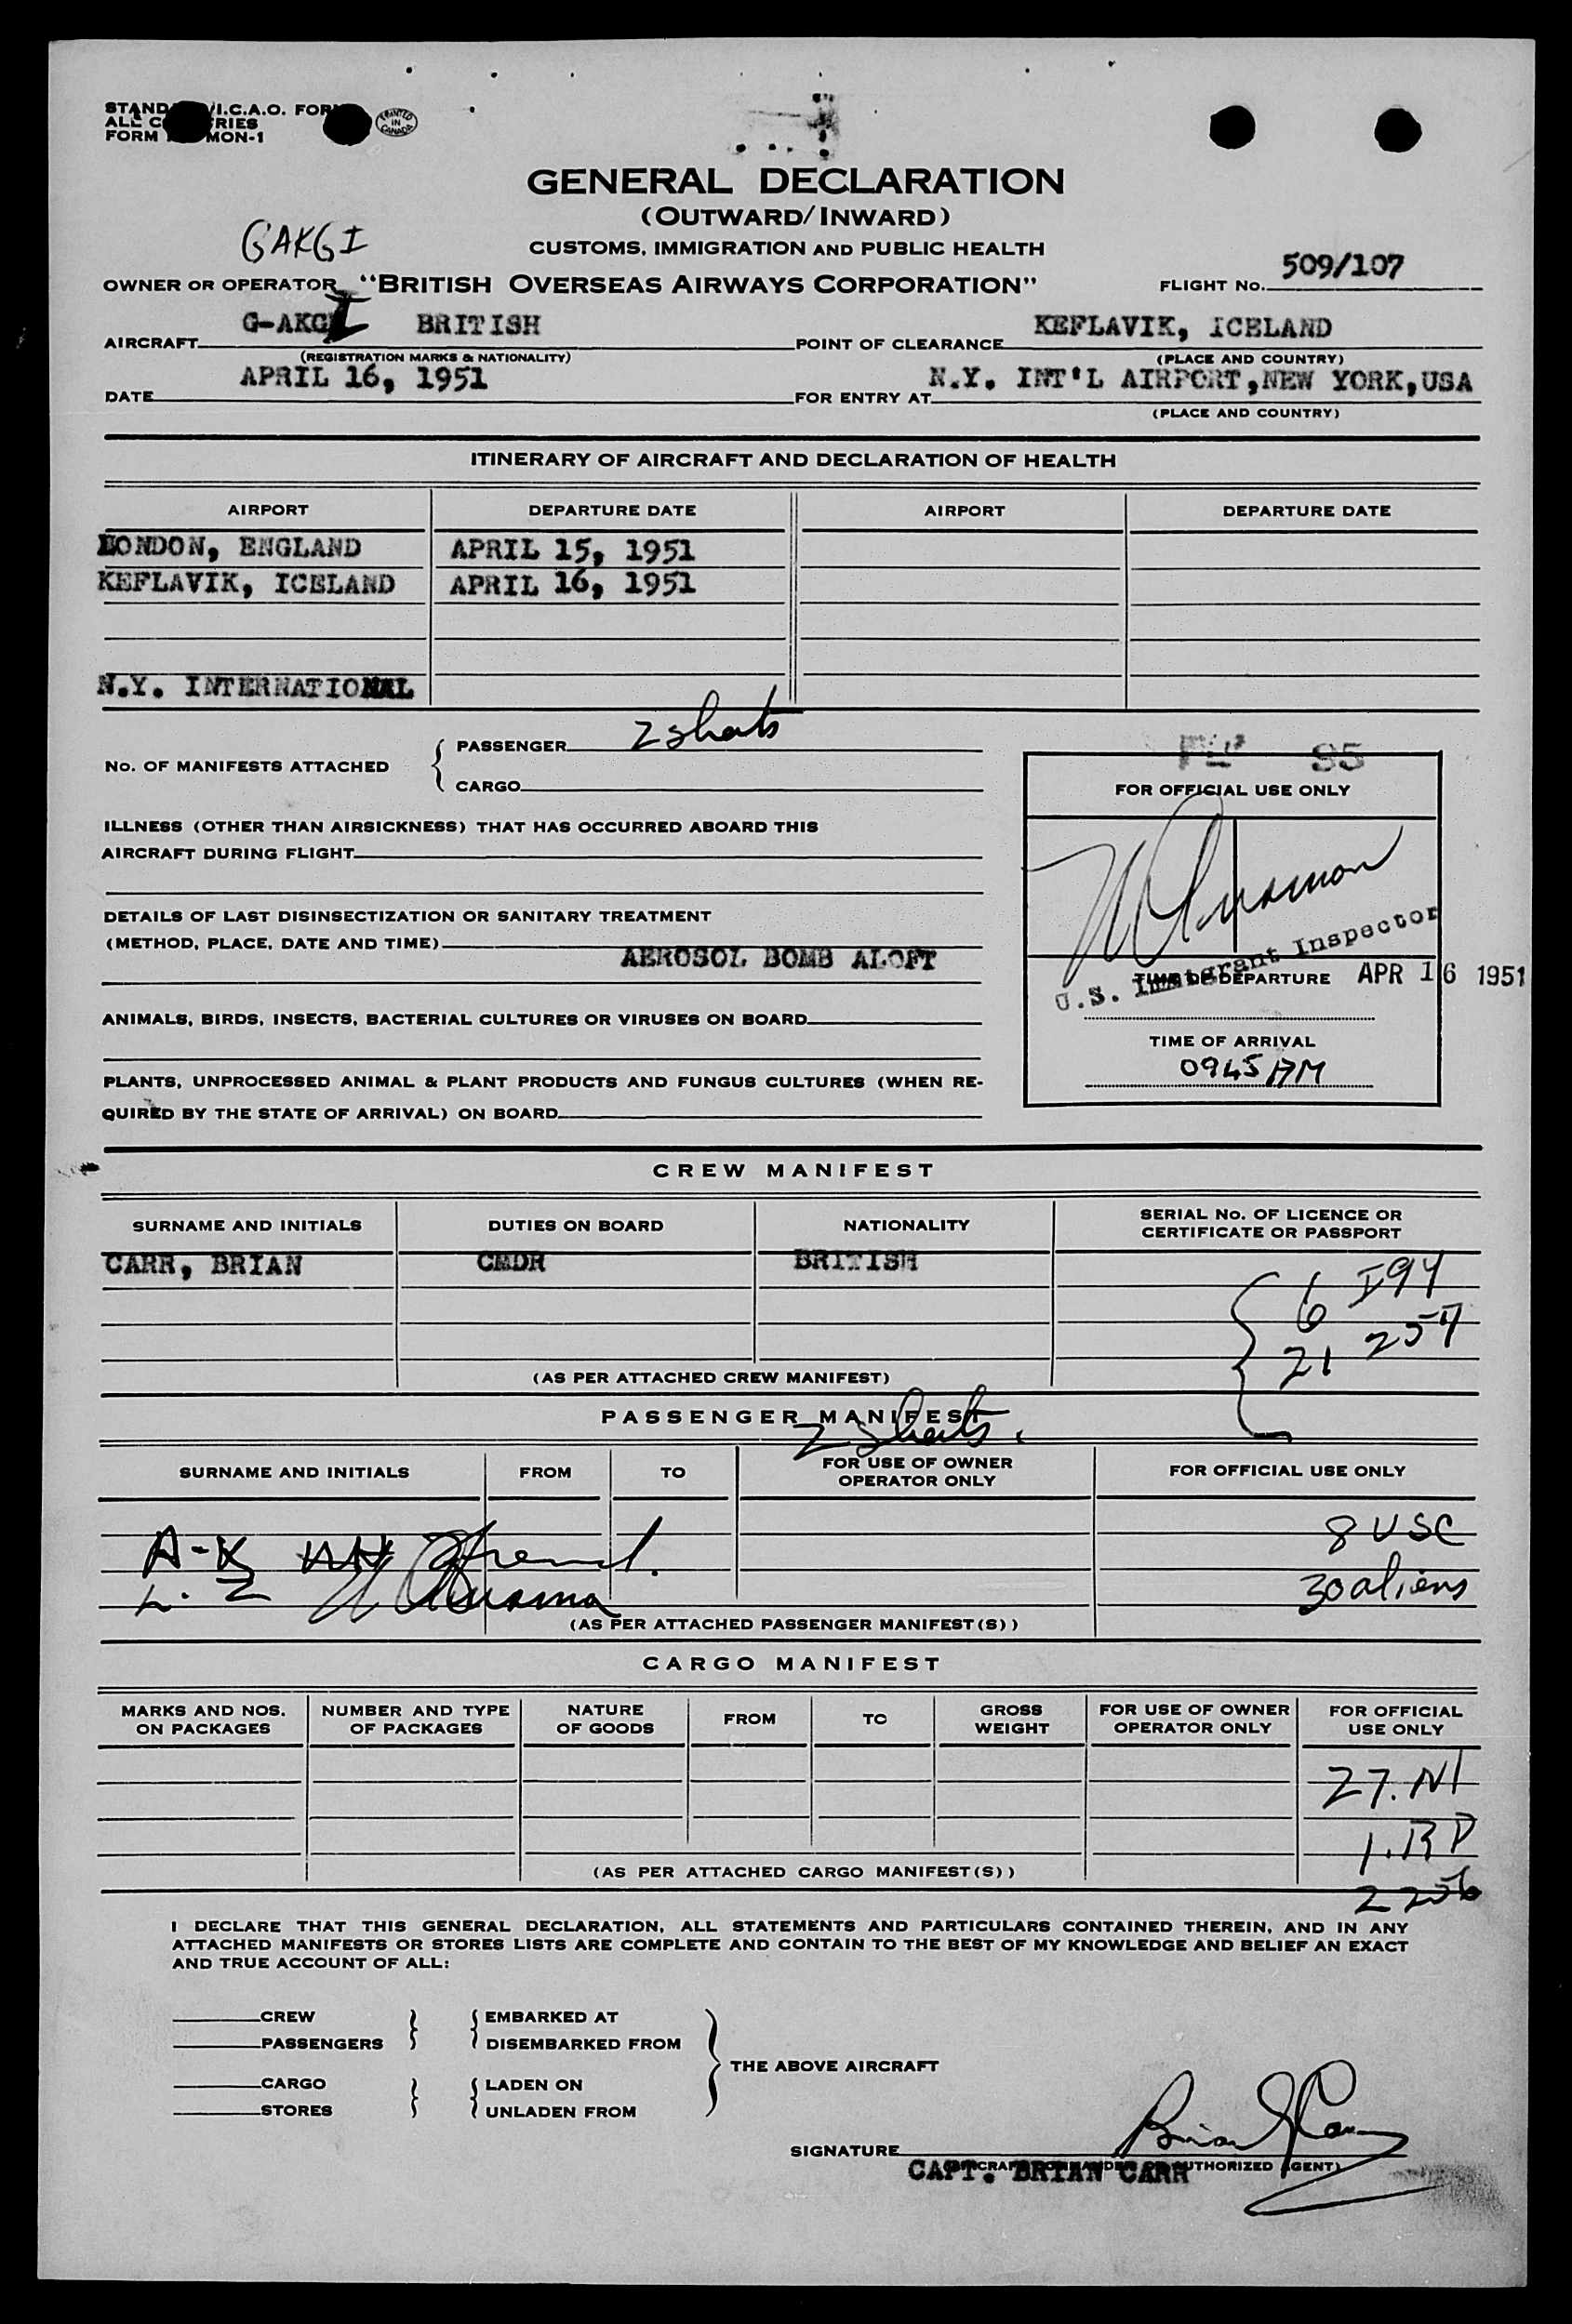 GAKGI
PRINTED IN CANADA
GENERAL DECLARATION
(OUTWARD/INWARD)
CUSTOMS, IMMIGRATION AND PUBLIC HEALTH
OWNER OR OPERATOR "BRITISH OVERSEAS AIRWAYS CORPORATION" FLIGHT No. 509/107
AIRCRAFT G-AKGI BRITISH POINT OF CLEARANCE KEFLAVIK, ICELAND
(REGISTRATION MARKS & NATIONALITY) (PLACE AND COUNTRY)
DATE APRIL 16, 1951 FOR ENTRY AT N.Y. INT'L AIRPORT, NEW YORK, USA
(PLACE AND COUNTRY)
ITINERARY OF AIRCRAFT AND DECLARATION OF HEALTH
AIRPORT DEPARTURE DATE AIRPORT DEPARTURE DATE
LONDON, ENGLAND APRIL 15, 1951
KEFLAVIK, ICELAND APRIL 16, 1951
N.Y. INTERNATIONAL
No. OF MANIFESTS ATTACHED
PASSENGER 2 sheets
CARGO
ILLNESS (OTHER THAN AIRSICKNESS) THAT HAS OCCURRED ABOARD THIS
AIRCRAFT DURING FLIGHT
DETAILS OF LAST DISINSECTIZATION OR SANITARY TREATMENT
(METHOD, PLACE, DATE AND TIME)
AEROSOL BOMB ALOFT
ANIMALS, BIRDS, INSECTS, BACTERIAL CULTURES OR VIRUSES ON BOARD
PLANTS, UNPROCESSED ANIMAL & PLANT PRODUCTS AND FUNGUS CULTURES (WHEN RE-
QUIRED BY THE STATE OF ARRIVAL) ON BOARD
FOR OFFICIAL USE ONLY
U.S. Immigrant Inspector
TIME OF DEPARTURE APR 16 1951
TIME OF ARRIVAL
0945 AM
CREW MANIFEST
SURNAME AND INITIALS DUTIES ON BOARD NATIONALITY SERIAL No. OF LICENCE OR
CERTIFICATE OR PASSPORT
CARR, BRIAN CMDR BRITISH
6 I94
21 257
(AS PER ATTACHED CREW MANIFEST)
PASSENGER MANIFEST
2 sheets.
SURNAME AND INITIALS FROM TO FOR USE OF OWNER
OPERATOR ONLY FOR OFFICIAL USE ONLY
8 USC
A-K
30 aliens
L. Z
(AS PER ATTACHED PASSENGER MANIFEST(S))
CARGO MANIFEST
MARKS AND NOS. NUMBER AND TYPE NATURE FROM TO GROSS FOR USE OF OWNER FOR OFFICIAL
ON PACKAGES OF PACKAGES OF GOODS WEIGHT OPERATOR ONLY USE ONLY
27. NI
1. RP
(AS PER ATTACHED CARGO MANIFEST(S))
I DECLARE THAT THIS GENERAL DECLARATION, ALL STATEMENTS AND PARTICULARS CONTAINED THEREIN, AND IN ANY
ATTACHED MANIFESTS OR STORES LISTS ARE COMPLETE AND CONTAIN TO THE BEST OF MY KNOWLEDGE AND BELIEF AN EXACT
AND TRUE ACCOUNT OF ALL:
CREW EMBARKED AT
PASSENGERS DISEMBARKED FROM
THE ABOVE AIRCRAFT
CARGO LADEN ON
STORES UNLADEN FROM
SIGNATURE Brian Carr
CAPT. BRIAN CARR AUTHORIZED AGENT)